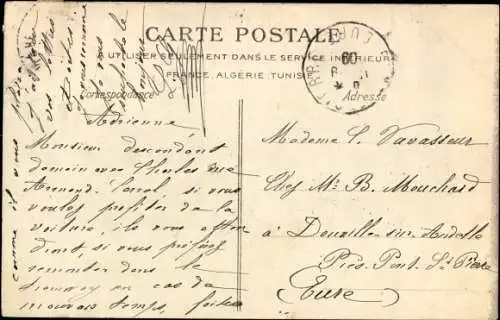 CARTE POSTALE
A UTILISER SEULEMENT DANS LE SERVICE INTÉRIEUR
FRANCE, ALGÉRIE TUNISIE
Correspondance
Adresse
EURE
Adrienne
Monsieur descendant
demain avec Charles rue
Armand Carrel si vous
voulez profiter de la
voiture, ils vous atten
dront, si vous préférez
remonter dans le
tramway en cas de
mauvais temps, faites
comme il vous
plaira
et dites
à vous
Madame L. Vavasseur
Chez Mr. B. Mouchard
à Douville sur Andelle
Près Pont St Pierre
(Eure)